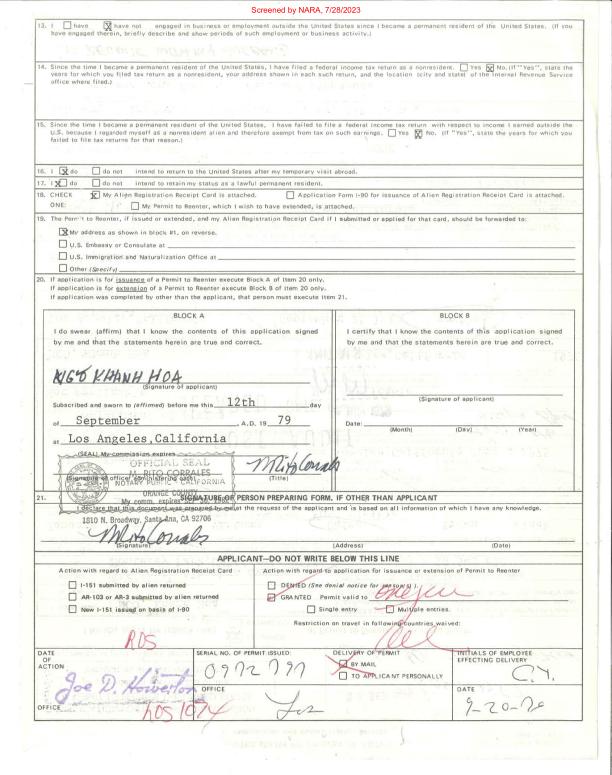 Screened by NARA, 7/28/2023
13. I have have not engaged in business or employment outside the United States since I became a permanent resident of the United States. (If you
have engaged therein, briefly describe and show periods of such employment or business activity.)
14. Since the time I became a permanent resident of the United States, I have filed a federal income tax return as a nonresident. Yes No. (If "Yes", state the
years for which you filed tax return as a nonresident, your address shown in each such return, and the location (city and state) of the Internal Revenue Service
office where filed.)
15. Since the time I became a permanent resident of the United States, I have failed to file a federal income tax return with respect to income I earned outside the
U.S. because I regarded myself as a nonresident alien and therefore exempt from tax on such earnings. Yes No. (If "Yes", state the years for which you
failed to file tax returns for that reason.)
16. I do do not intend to return to the United States after my temporary visit abroad.
17. I do do not intend to retain my status as a lawful permanent resident.
18. CHECK My Alien Registration Receipt Card is attached. Application Form I-90 for issuance of Alien Registration Receipt Card is attached.
ONE: My Permit to Reenter, which I wish to have extended, is attached.
19. The Permit to Reenter, if issued or extended, and my Alien Registration Receipt Card if I submitted or applied for that card, should be forwarded to:
My address as shown in block #1, on reverse.
U.S. Embassy or Consulate at
U.S. Immigration and Naturalization Office at
Other (Specify)
20. If application is for issuance of a Permit to Reenter execute Block A of Item 20 only.
If application is for extension of a Permit to Reenter execute Block B of Item 20 only.
If application was completed by other than the applicant, that person must execute Item 21.
BLOCK A
I do swear (affirm) that I know the contents of this application signed
by me and that the statements herein are true and correct.
NGÔ KHANH HOA
(Signature of applicant)
Subscribed and sworn to (affirmed) before me this 12th day
of September , A.D. 19 79
at Los Angeles, California
(SEAL) My commission expires
OFFICIAL SEAL
M. RITO CORRALES
NOTARY PUBLIC - CALIFORNIA
ORANGE COUNTY
(Signature of officer administering oath) (Title)
M Rito Corrales
BLOCK B
I certify that I know the contents of this application signed
by me and that the statements herein are true and correct.
(Signature of applicant)
Date:
(Month) (Day) (Year)
21. SIGNATURE OF PERSON PREPARING FORM, IF OTHER THAN APPLICANT
I declare that this document was prepared by me at the request of the applicant and is based on all information of which I have any knowledge.
1810 N. Broadway, Santa Ana, CA 92706
M Rito Corrales
(Signature) (Address) (Date)
APPLICANT—DO NOT WRITE BELOW THIS LINE
Action with regard to Alien Registration Receipt Card
I-151 submitted by alien returned
AR-103 or AR-3 submitted by alien returned
New I-151 issued on basis of I-90
Action with regard to application for issuance or extension of Permit to Reenter
DENIED (See denial notice for reason(s).)
GRANTED Permit valid to one year
Single entry Multiple entries.
Restriction on travel in following countries waived:
All
DATE OF ACTION
Joe D. Howerton
OFFICE
SERIAL NO. OF PERMIT ISSUED:
0972797
OFFICE
Los
DELIVERY OF PERMIT
BY MAIL
TO APPLICANT PERSONALLY
INITIALS OF EMPLOYEE
EFFECTING DELIVERY
C.Y.
DATE